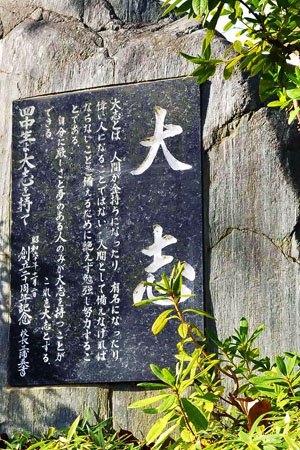 大志
大志とは、人間が金持ちになったり、有名になったり
偉い人となることではない。人間として備えなければ
ならないことを備えるために絶えず勉強し努力するこ
とである。
自分に厳しさと夢のある人のみが大志を持つことが
できる。
これを大志とする。
四中生よ大志を持て
創立二十周年記念